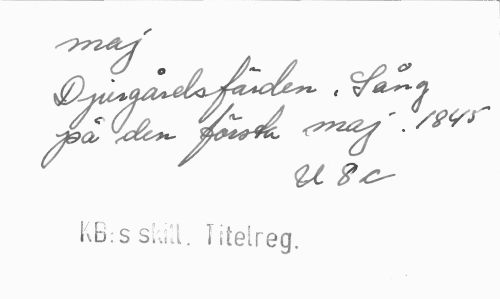 maj
Djurgårdsfärden. Sång
på den första maj. 1845
U 8 c
KB:s skill. Titelreg.